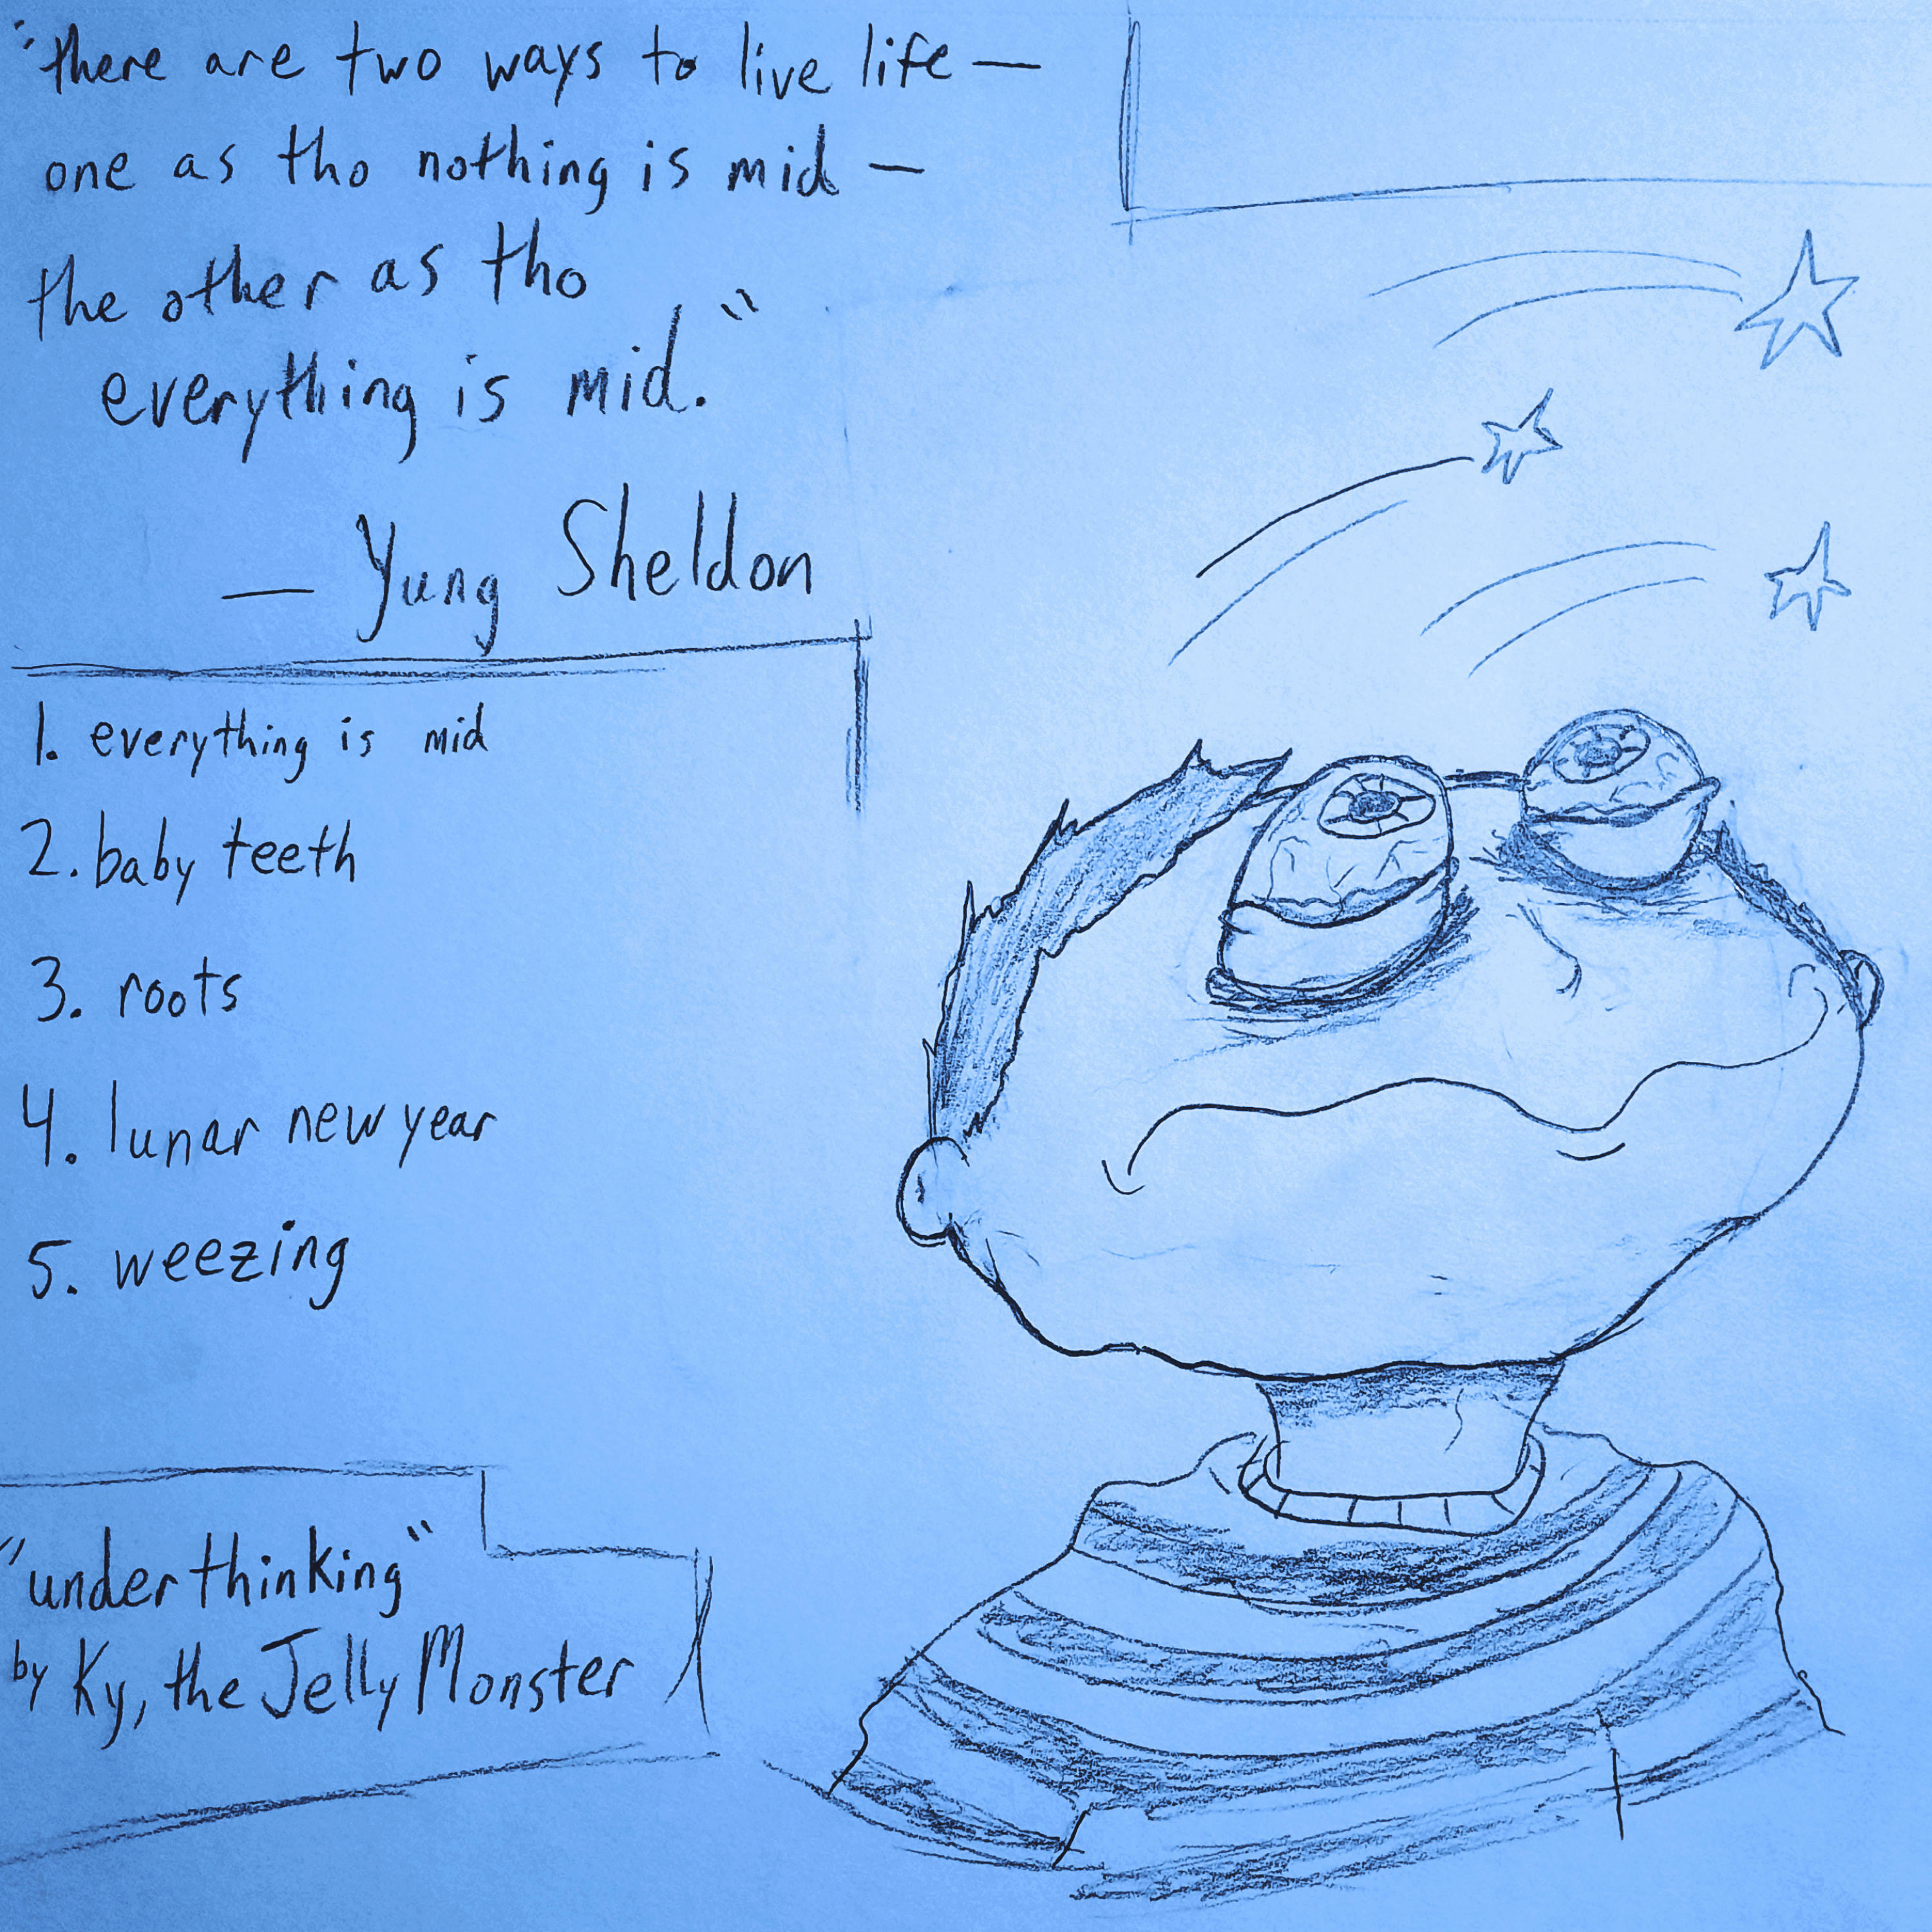 "there are two ways to live life —
one as tho nothing is mid —
the other as tho
everything is mid."
— Yung Sheldon
1. everything is mid
2. baby teeth
3. roots
4. lunar new year
5. weezing
"underthinking"
by Ky, the Jelly Monster